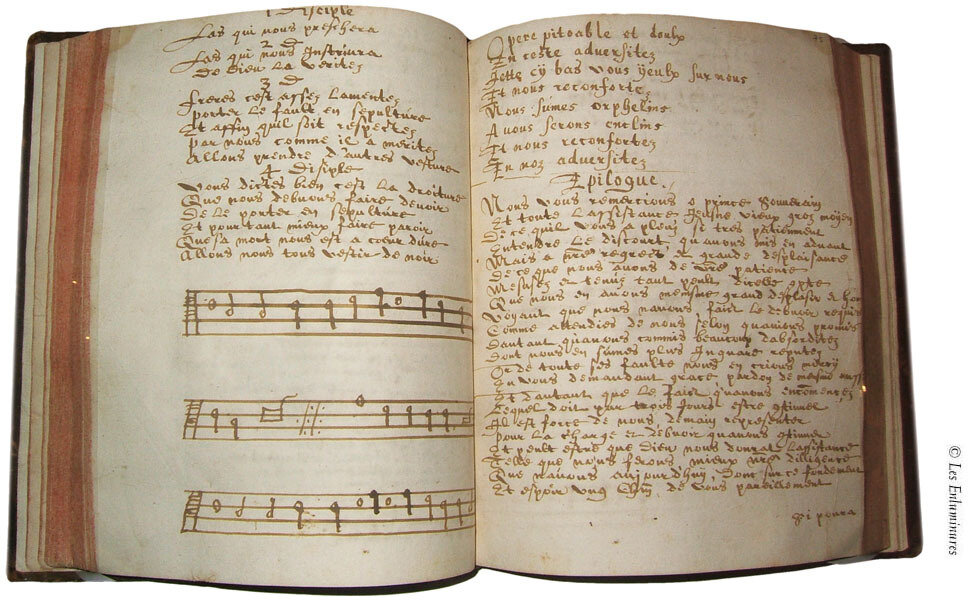 1 Disciple
Las qui nous preschera
2 D
Las qui nous Instruira
De Dieu La verites
3 D
freres c'est asses Lamentes
porter Le fault en sepulture
Et affin quil soit respectes
par nous comme il a merites
Allons prendre d'autres vesture
4 Disiple
Vous dictes bien c'est La droiture
Que nous debuons faire debuoir
De Le porter en sepulture
Et pourtant mieux faire paroir
Que sa mort nous est a coeur dure
Allons nous tous vestir de noir
O pere pitoable et doulx
En ceste adversitez
Jette cy bas vous yeulx sur nous
Et nous reconfortez
Nous sumes orphelins
A vous serons enclins
Et nous reconfortez
En noz adversitez
Epilogue
Nous vous remercions o prince Souverain
Et toute Lassistance Jeusne vieux gros moyen
De ce quil vous a pleu si tres patiemment
Entendre Le discourt quavons mis en advant
Mais a nre regret et grande desplaisance
De ce que nous avons de vre patiente
Mesuses et tenus tant peult dicelle
Que nous en avons mesmse grand desplesir
Voyant que nous navons fait Le debvoir requis
Comme attendies de nous selon quavions promis
Dautant quavons commis beaucoup dabsorditez
Dont nous en sumes plus Inguare reputez
Or de toute ses faulte nous en crions mercy
En vous demandant grace pardon de mesme
Et dautant que Le fait quavons encomencez
Lequel doit par trois Jours estre
Il est force de nous demain representer
pour La charge et debvoir quavons
Et peult estre que Dieu nous donrat Lassistance
Telle que nous ferons mieux vre dilligence
Que navons aujourd'huy, Dont sur ce fondement
Et espoir ung Chm de vous pareillement
qui poura
© Les Enluminures